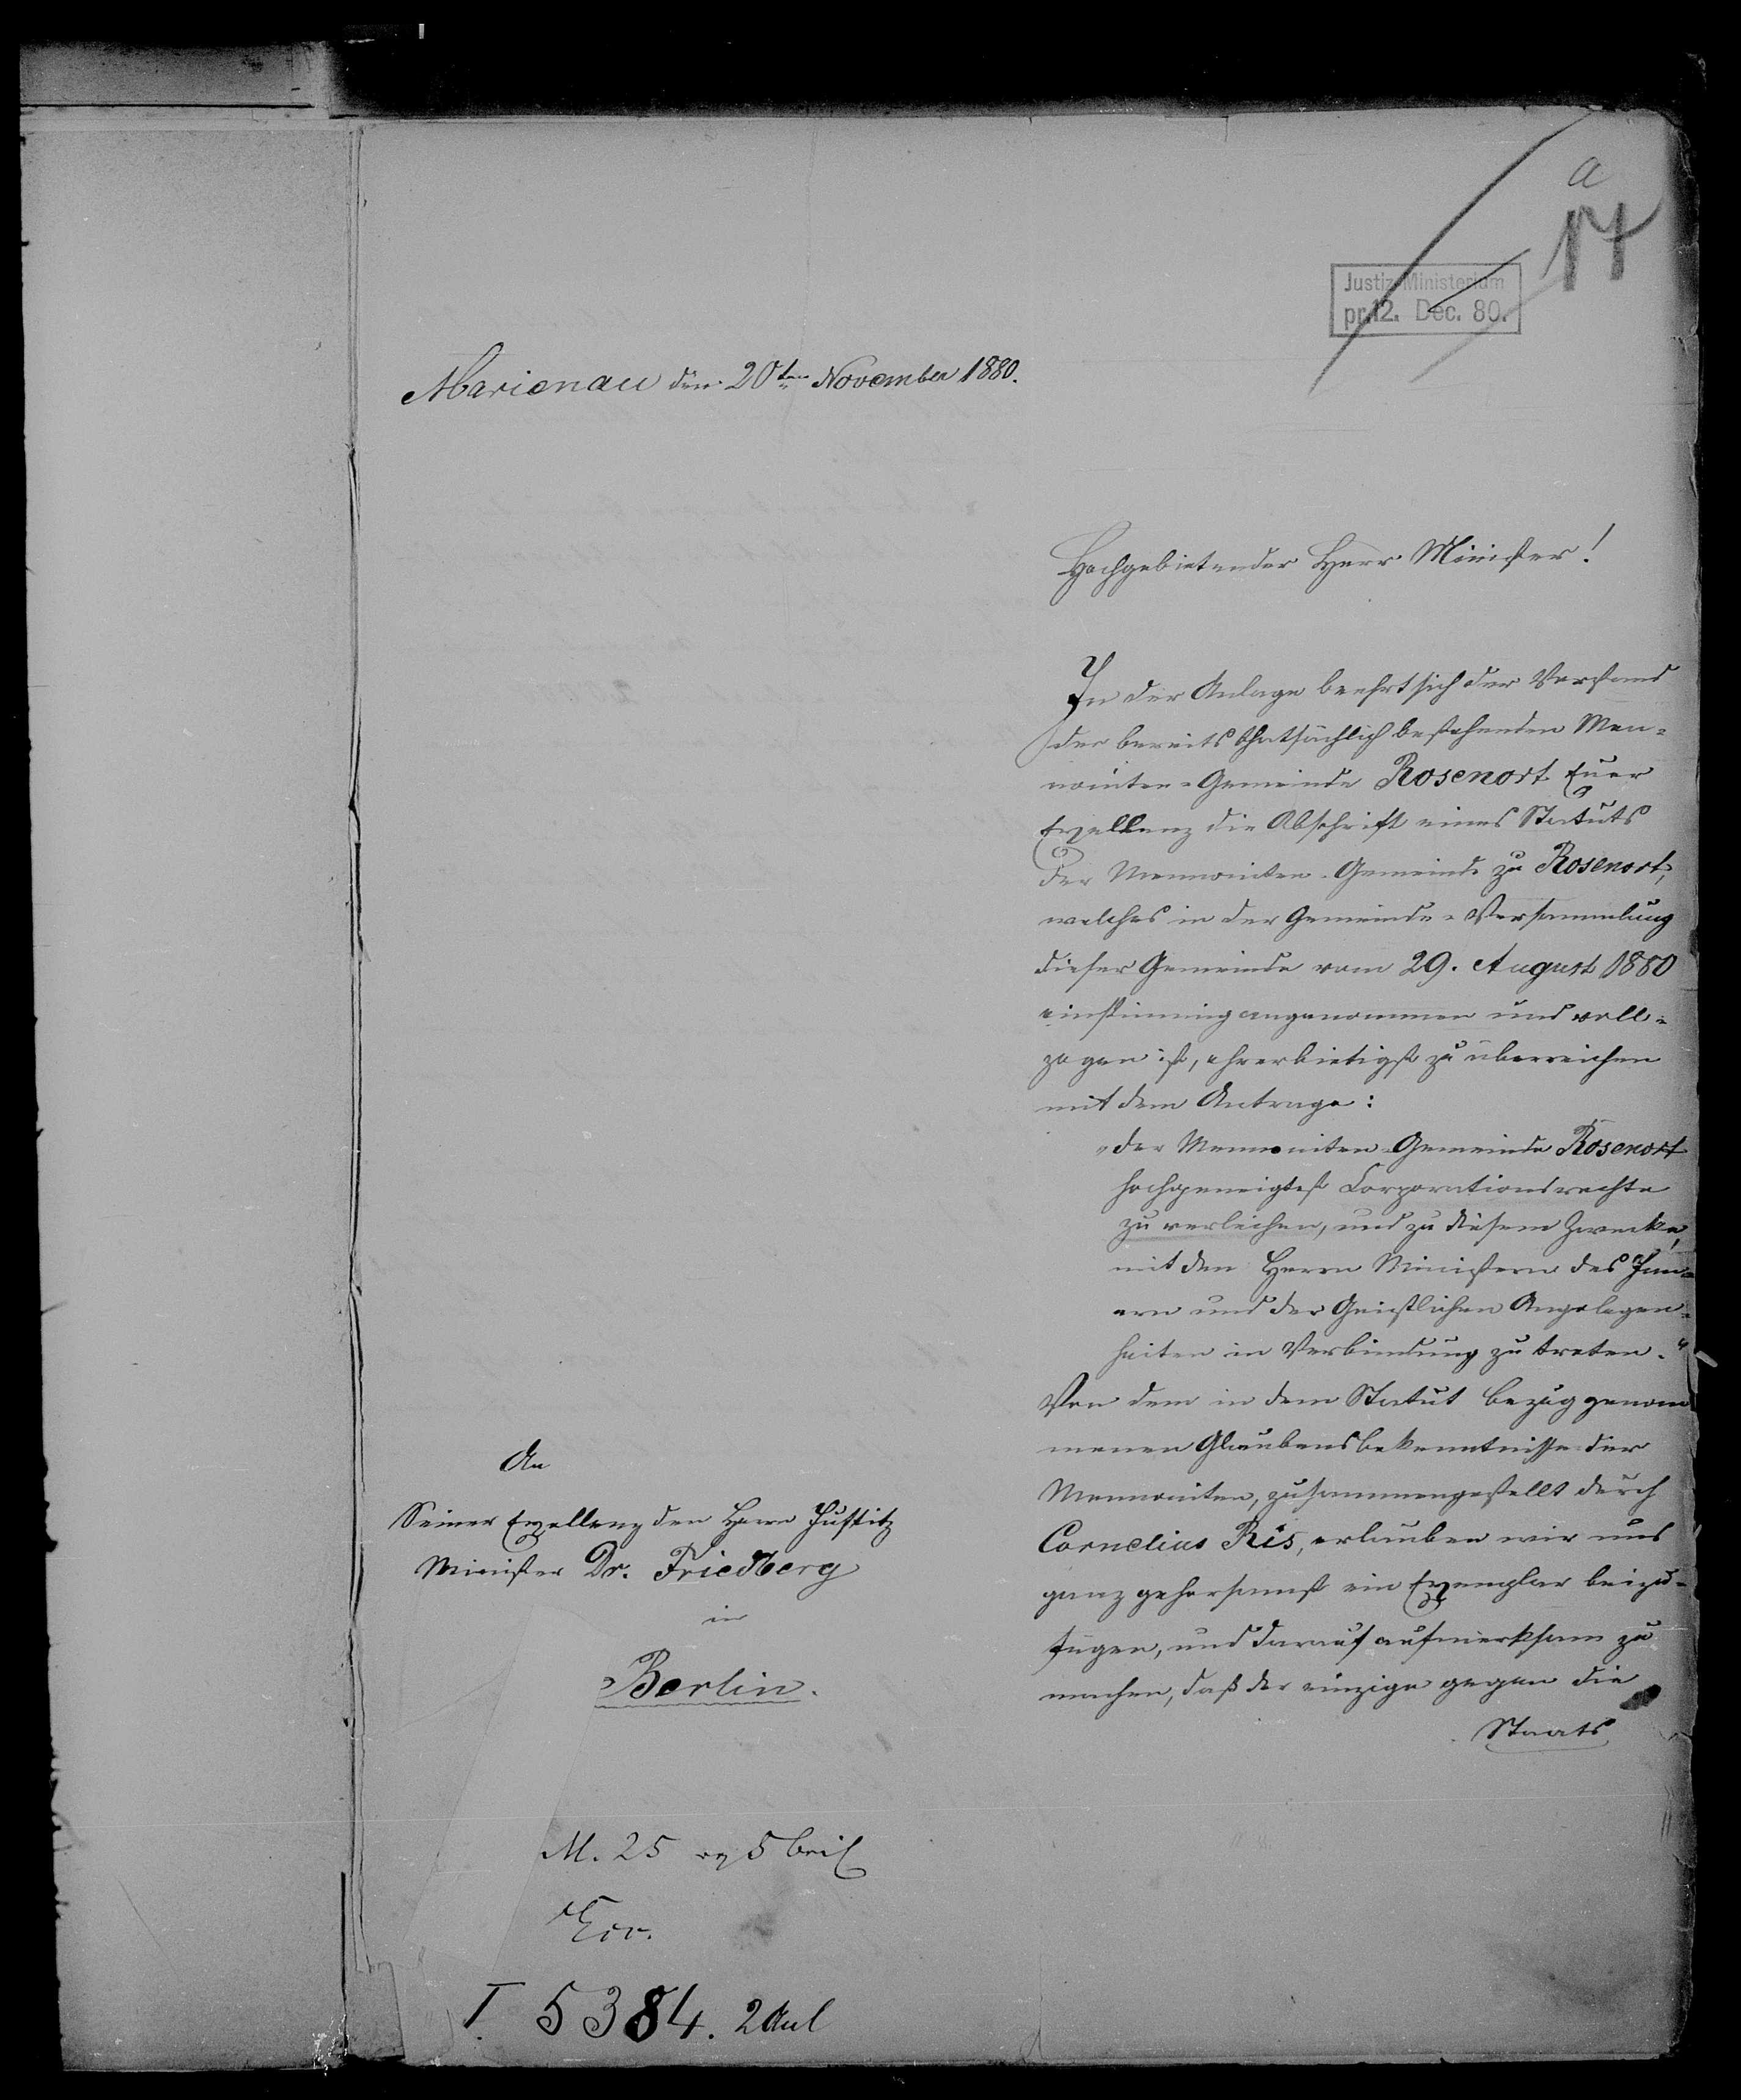 a
17
Justiz-Ministerium
pr. 12. Dec. 80.
Marienau den 20ten November 1880.
Hochgebietender Herr Minister!
In der Anlage beehrt sich der Vorstand
der bereits thatsächlich bestehenden Men-
noniten-Gemeinde Rosenort Euer
Exzellenz die Abschrift eines Statuts
der Mennoniten-Gemeinde zu Rosenort,
welches in der Gemeinde-Versammlung
dieser Gemeinde vom 29. August 1880
einstimmig angenommen und voll-
zogen ist, ehrerbietigst zu überreichen
mit dem Antrage:
"der Mennoniten-Gemeinde Rosenort
hochgeneigtest Corporationsrechte
zu verleihen, und zu diesem Zwecke,
mit den Herrn Ministern des Inn-
ern und der Geistlichen Angelegen-
heiten in Verbindung zu treten."
Von dem in dem Statut bezug genom
menen Glaubensbekenntnisse der
Mennoniten, zusammengestellt durch
Cornelius Ris, erlauben wir uns
ganz gehorsamst ein Exemplar beizu-
fügen, und darauf aufmerksam zu
machen, daß der einzige gegen die
Staats
An
Seiner Exzellenz den Herrn Justitz
Minister Dr. Friedberg
in
Berlin.
M. 25 5 beil
I 5384. 2 Anl